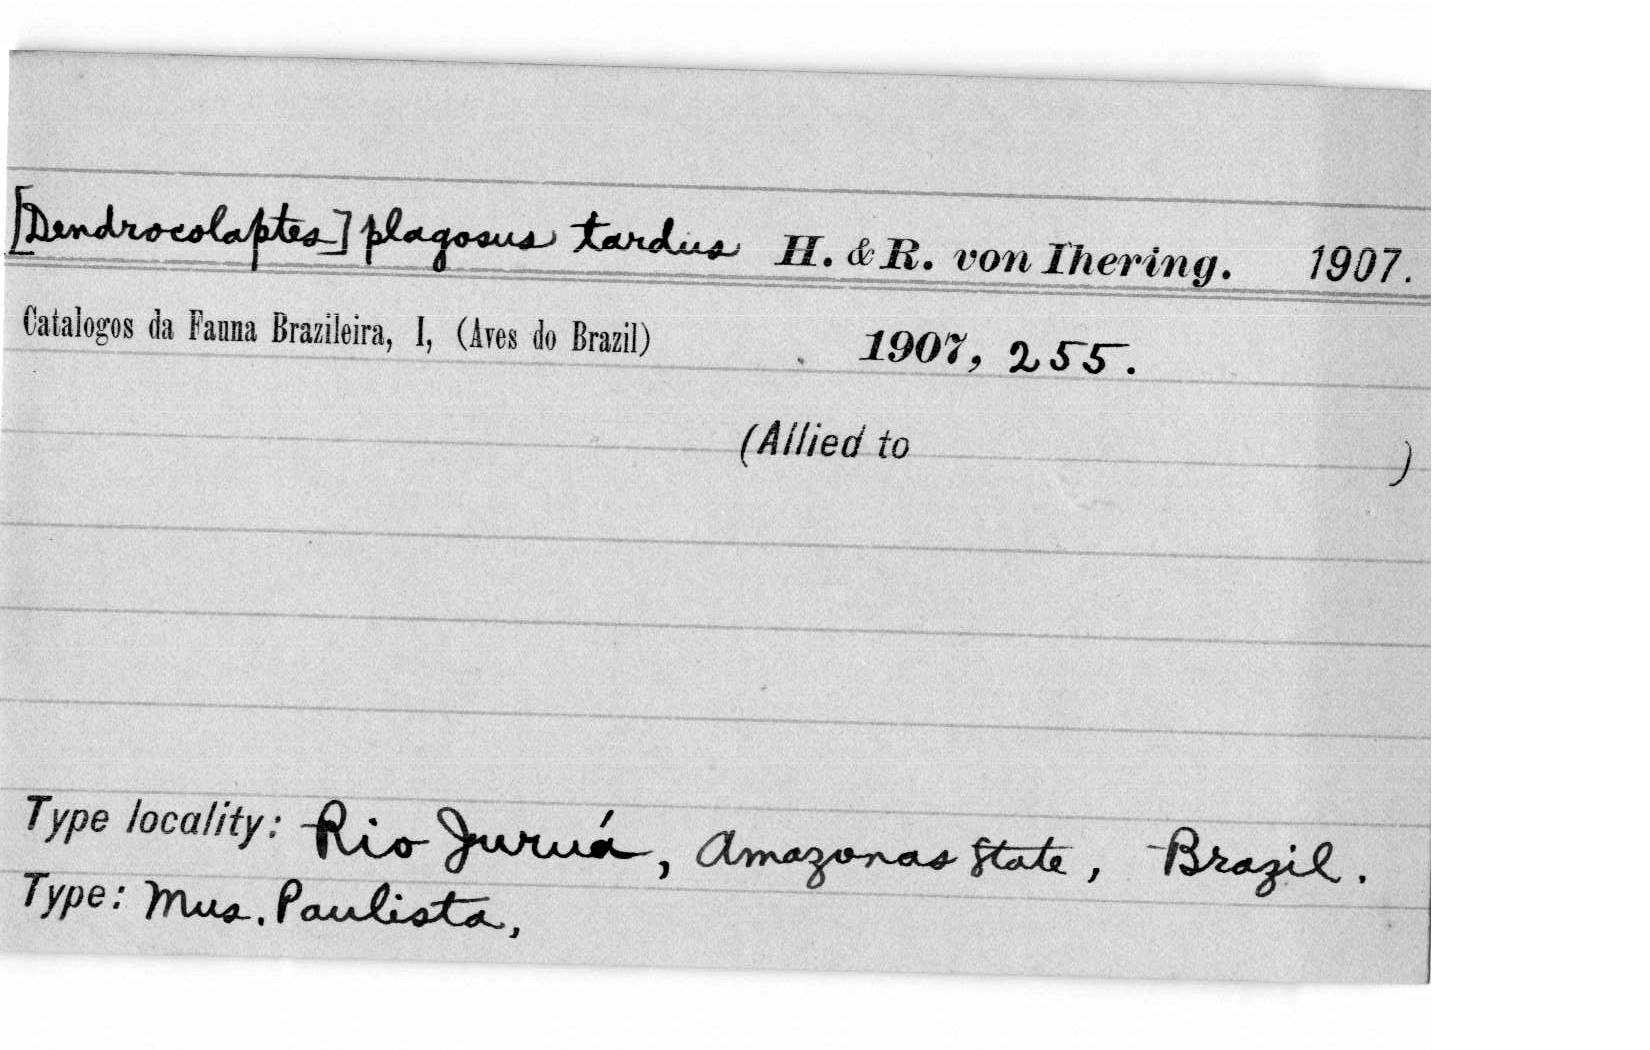 [Dendrocolaptes] plagosus tardus H. & R. von Ihering. 1907.
Catalogos da Fauna Brazileira, I, (Aves do Brazil) 1907, 255.
(Allied to )
Type locality: Rio Juruá, Amazonas State, Brazil.
Type: Mus. Paulista,